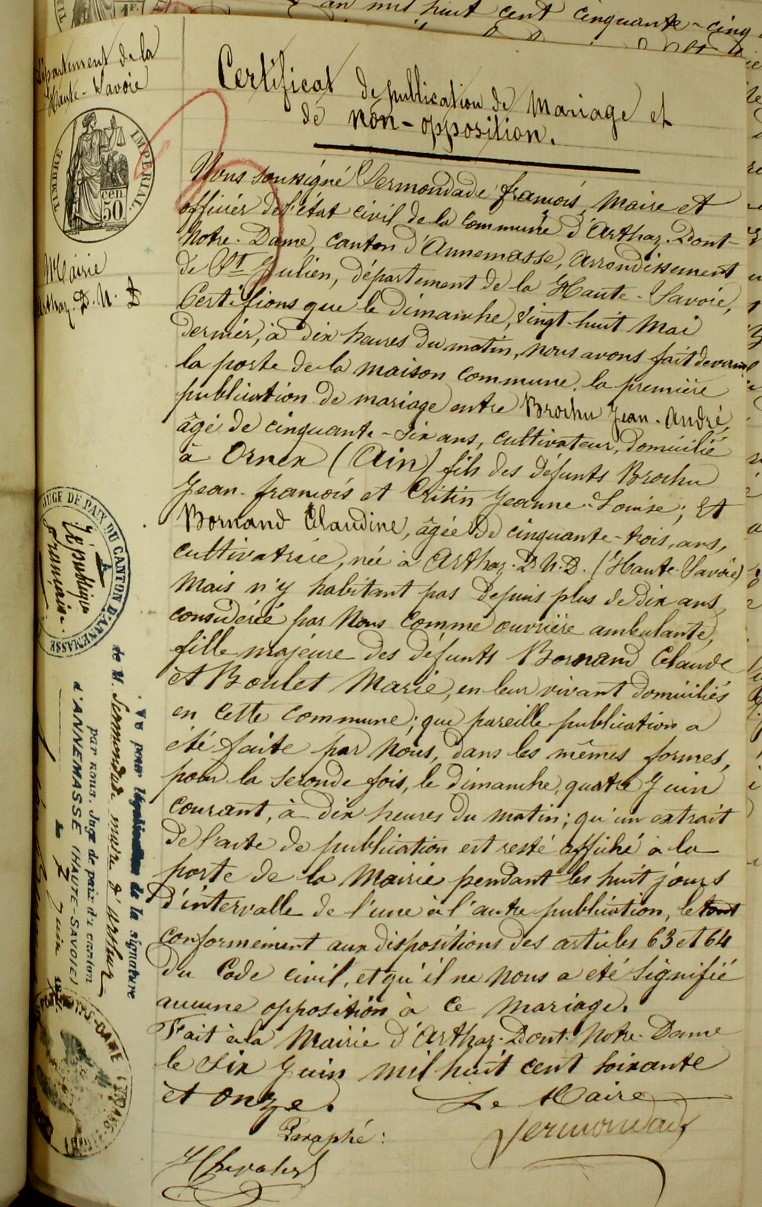 an mil huit cent cinquante-cinq
Département de la
Haute-Savoie
TIMBRE IMPERIAL.
50 cen
Mairie
Arthaz. P. N. D.
Certificat de publication de Mariage et
de non-opposition.
Nous soussigné Sermondade françois, Maire et
officier de l'état civil de la commune d'Arthaz-Pont-
Notre-Dame, canton d'Annemasse, Arrondissement
de St Julien, département de la Haute-Savoie,
Certifions que le dimanche, vingt-huit Mai
dernier, à dix heures du matin, nous avons fait devant
la porte de la maison commune, la première
publication de mariage entre Brochu Jean-André,
âgé de cinquante-six ans, cultivateur, domicilié
à Ornex (Ain) fils des défunts Brochu
Jean-françois et Critin Jeanne-Louise; Et
Bornand Claudine, âgée de cinquante-trois, ans,
cultivatrice, née à Arthaz. P. N. D. (Haute Savoie)
Mais n'y habitant pas depuis plus de dix ans,
considérée par Nous comme ouvrière ambulante,
fille majeure des défunts Bornand Claude
et Boulet Marie, en leur vivant domiciliés
en cette commune; que pareille publication a
été faite par Nous, dans les mêmes formes,
pour la seconde fois, le dimanche, quatre Juin
courant, à dix heures du matin; qu'un extrait
de l'acte de publication est resté affiché à la
porte de la Mairie pendant les huit jours
d'intervalle de l'une à l'autre publication, le tout
conformément aux dispositions des articles 63 et 64
du Code civil, et qu'il ne Nous a été signifié
aucune opposition à ce mariage.
Fait à la Mairie d'Arthaz-Pont-Notre-Dame
le six Juin mil huit cent soixante
et onze.
Le Maire
Paraphé:
Sermondade
JUGE DE PAIX DU CANTON D'ANNEMASSE
République
française.
Vu pour légalisation de la signature
de M. Sermondade maire d'Arthaz
par nous, Juge de paix du canton
d'ANNEMASSE (HAUTE-SAVOIE)
le 7 Juin